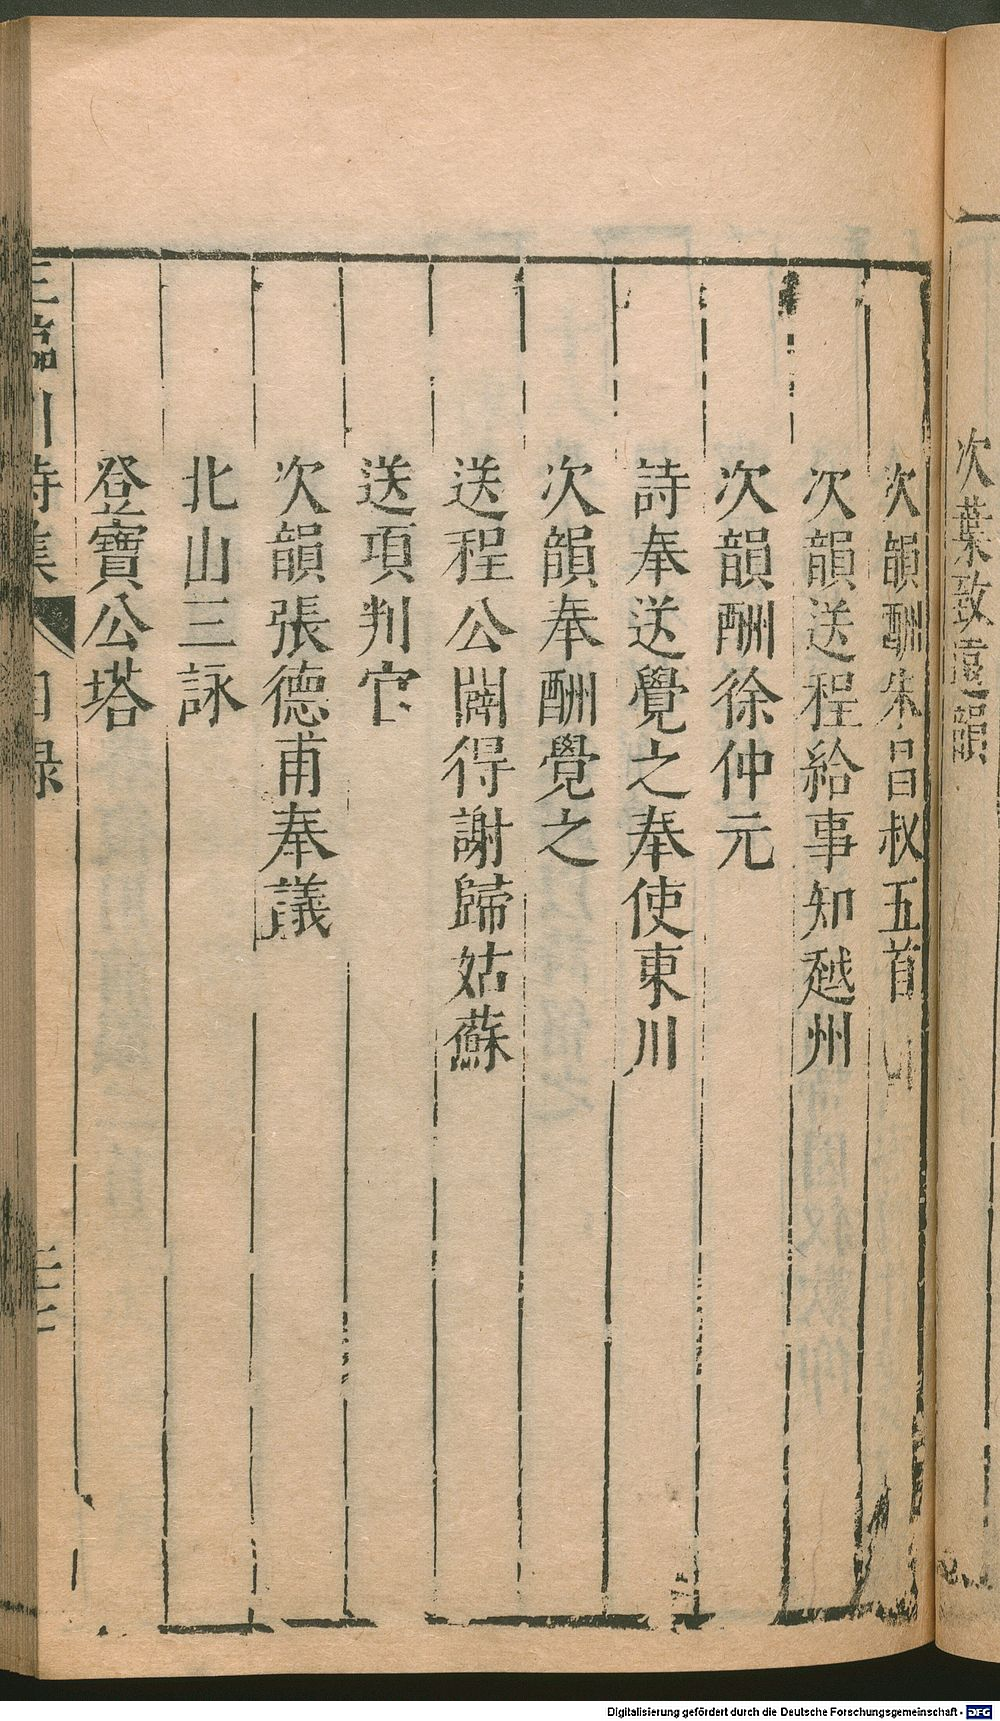 次葉致遠韻
次韻酬朱昌叔五首
次韻送程給事知越州
次韻酬徐仲元
詩奉送覺之奉使東川
次韻奉酬覺之
送程公闢得謝歸姑蘇
送項判官
次韻張德甫奉議
北山三詠
登寶公塔
王臨川詩集 目録
Digitalisierung gefördert durch die Deutsche Forschungsgemeinschaft - DFG